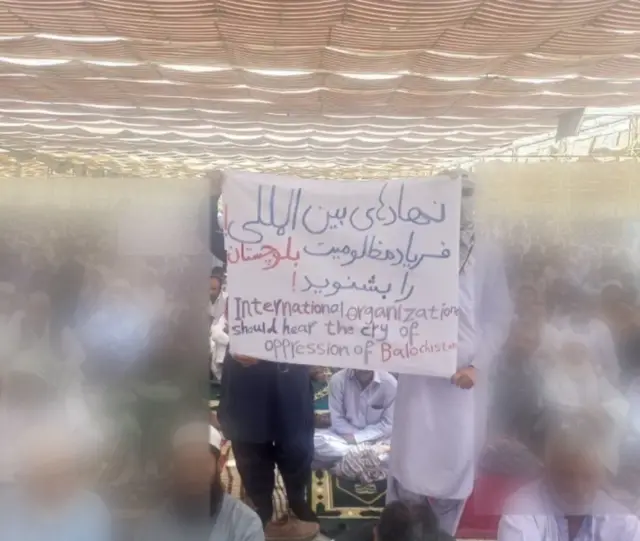 نهادهای بین المللی!
فریاد مظلومیت بلوچستان
را بشنوید!
International organization
should hear the cry of
oppression of Balochista